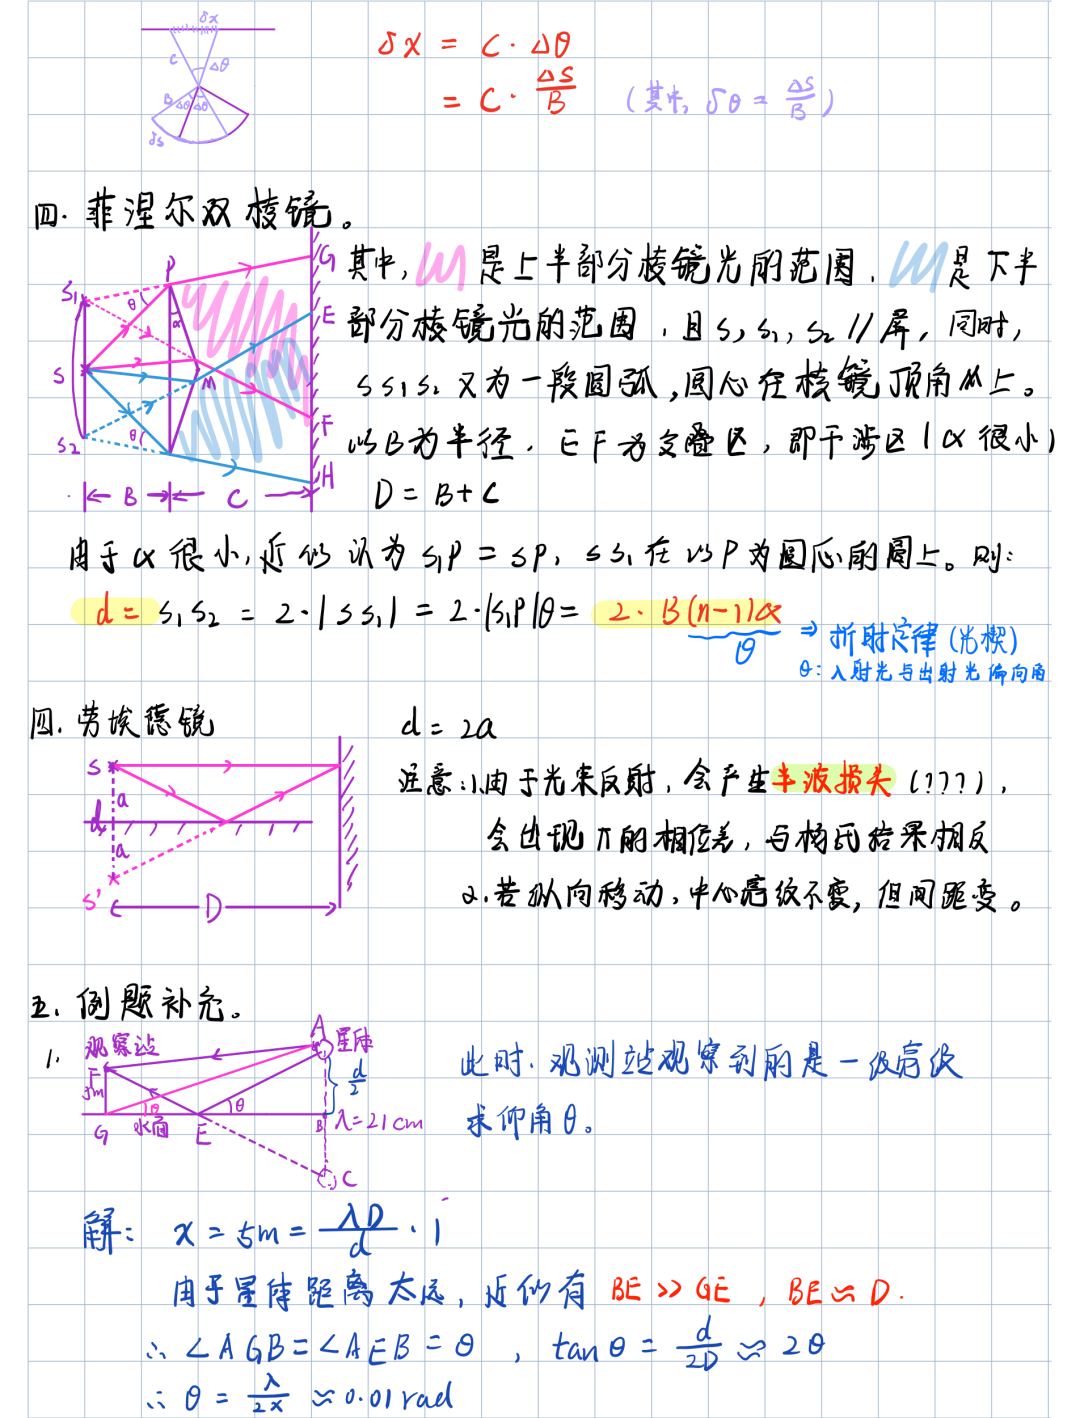 δx
C
Δθ
B Δθ Δθ
δs
δx = C · Δθ
= C · ΔS/B （其中, δθ = ΔS/B）
四. 菲涅尔双棱镜。
S₁ θ P α G
E
S M
F
S₂ θ H
B C
其中, 是上半部分棱镜光的范围, 是下半
部分棱镜光的范围, 且 S, S₁, S₂ // 屏, 同时,
SS₁S₂ 又为一段圆弧, 圆心在棱镜顶角M上。
以B为半径, EF为交叠区, 即干涉区 (α很小)
D = B + C
由于α很小, 近似认为 S₁P = SP, SS₁在以P为圆心的圆上。则:
d = S₁S₂ = 2·|SS₁| = 2·|S₁P|θ = 2·B(n-1)α
θ ⇒ 折射定律 (光楔)
θ: 入射光与出射光偏向角
四. 劳埃德镜
S
a
d
a
S'
D
d = 2a
注意: 1.由于光束反射, 会产生半波损失 (???),
会出现π的相位差, 与杨氏结果相反
2.若纵向移动, 中心亮纹不变, 但间距变。
五. 例题补充。
1. 观察站 A 星体
F
5m d/2
θ θ
G 水面 E B λ=21cm
C
此时, 观测站观察到的是一级亮纹
求仰角θ。
解: x = 5m = λD/d · 1
由于星体距离太远, 近似有 BE >> GE , BE ≈ D.
∴ ∠AGB = ∠AEB = θ , tanθ = d/2D ≈ 2θ
∴ θ = λ/2x ≈ 0.01 rad